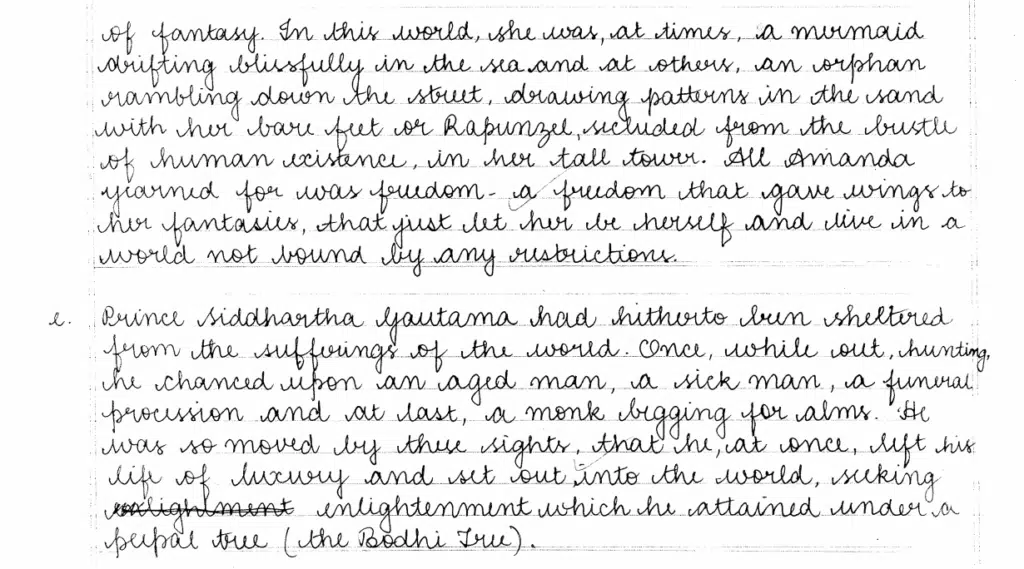 of fantasy. In this world, she was, at times, a mermaid
drifting blissfully in the sea and at others, an orphan
rambling down the street, drawing patterns in the sand
with her bare feet or Rapunzel, secluded from the bustle
of human existence, in her tall tower. All Amanda
yearned for was freedom - a freedom that gave wings to
her fantasies, that just let her be herself and live in a
world not bound by any restrictions.
e. Prince Siddhartha Gautama had hitherto been sheltered
from the sufferings of the world. Once, while out, hunting,
he chanced upon an aged man, a sick man, a funeral
procession and at last, a monk begging for alms. He
was so moved by these sights, that he, at once, left his
life of luxury and set out into the world, seeking
enlighlment enlightenment which he attained under a
peepal tree (the Bodhi Tree).